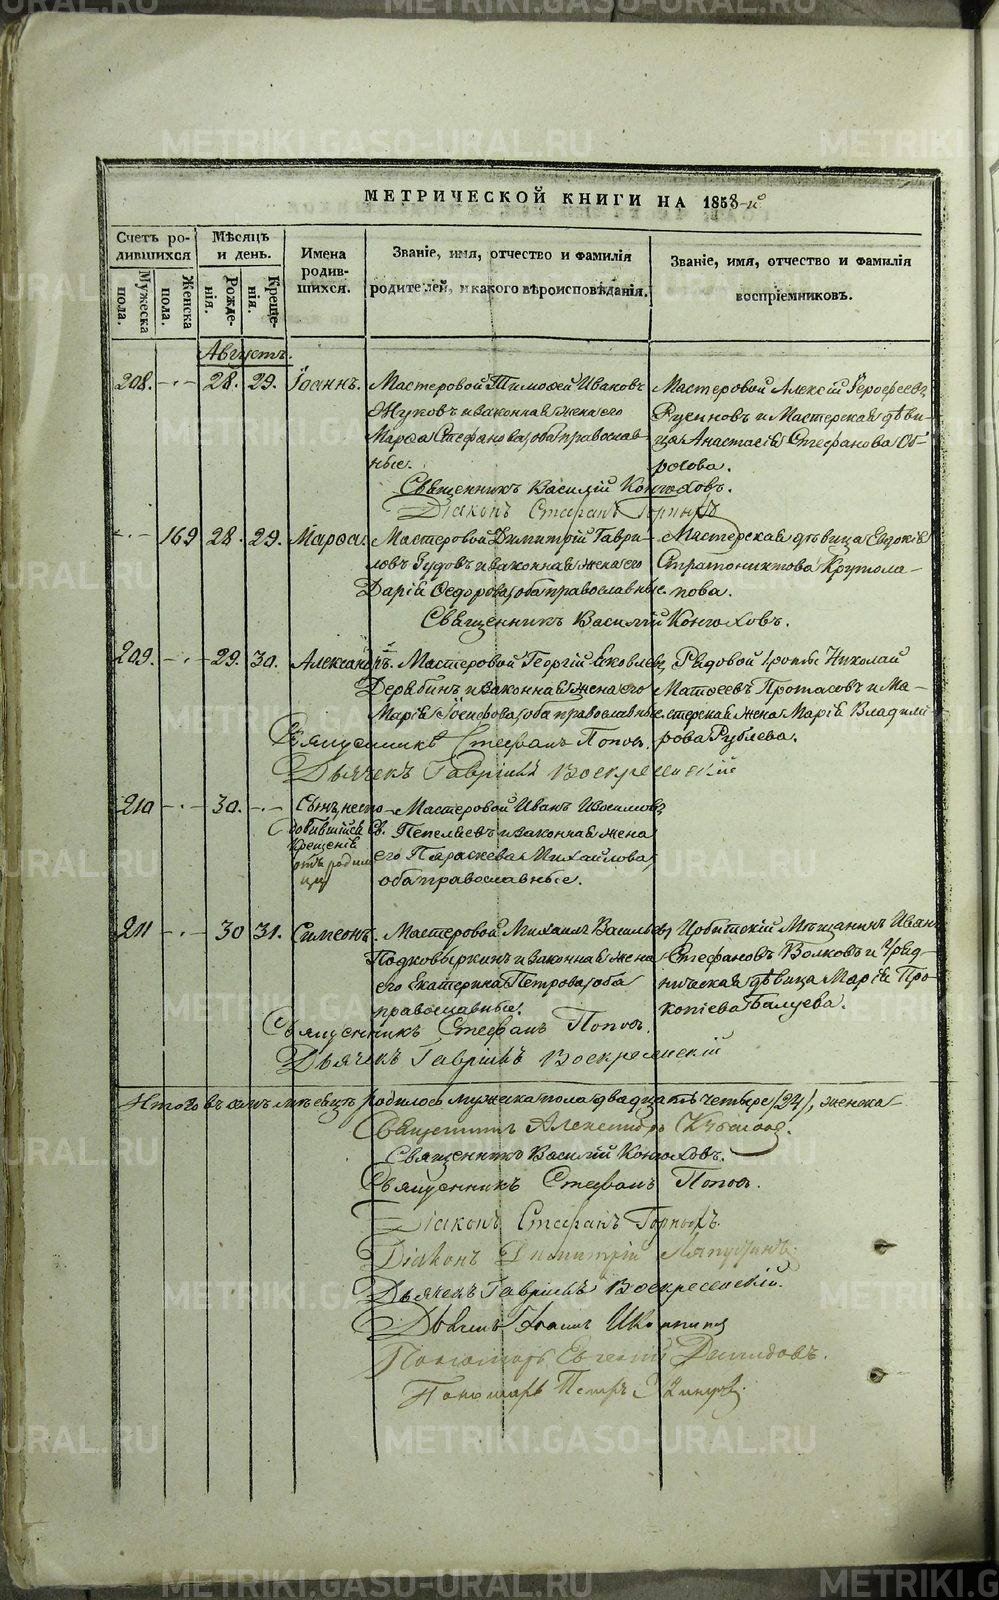 METRIKI.GASO-URAL.RU
МЕТРИЧЕСКОЙ КНИГИ НА 1858-й
Счетъ ро-
дившихся
Мужеска пола.
Женска пола.
Мѣсяцъ
и день.
Рожде-
нія.
Креще-
нія.
Имена
родив-
шихся.
Званіе, имя, отчество и фамилія
родителей, и какого вѣроисповѣданія.
Званіе, имя, отчество и фамилія
воспріемниковъ.
Августъ.
208. - 28. 29. Іоаннъ. Мастеровой Тимофей Ивановъ
Жуковъ и законная жена его
Марѳа Стефанова, оба православ-
ные.
Мастеровой Алексій Іерофеевъ
Русиновъ и Мастерская дѣви-
ца Анастасія Стефанова
Священникъ Василій Конюховъ.
Діаконъ Стефанъ Горныхъ
- 169 28. 29. Марѳа. Мастеровой Димитрій Гаври-
ловъ Зудовъ и законная жена его
Дарія Ѳедорова, оба православные.
Мастерская дѣвица Евдокія
Стратониктова Крутола-
пова.
Священникъ Василій Конюховъ.
209. - 29. 30. Александръ. Мастеровой Георгій Яковлевъ
Дерябинъ и законная жена его
Марія Іосифова, оба православные.
Рядовой роты Николай
Матѳеевъ Протасовъ и Ма-
стерская жена Марія Владими
рова Рублева.
Священникъ Стефанъ Поповъ.
Дьячекъ Гавріилъ Воскресенскій
210 - 30. - Сынъ, неспо-
добившійся Св.
Крещенія
отъ родим
цу
Мастеровой Иванъ Васильевъ
Пепеляевъ и законная жена
его Параскева Михайлова,
оба православные.
211 - 30 31. Симеонъ. Мастеровой Михаилъ Васильевъ
Подковыркинъ и законная жена
его Екатерина Петрова, оба
православные.
Ирбитскій Мѣщанинъ Иванъ
Стефановъ Волковъ и Уряд-
ническая дѣвица Марія Про-
копіева Балуева.
Священникъ Стефанъ Поповъ.
Дьячекъ Гавріилъ Воскресенскій
Итого въ семъ мѣсяцѣ родилось мужеска пола двадцать четыре (24), женска
Священникъ Александръ
Священникъ Василій Конюховъ.
Священникъ Стефанъ Поповъ.
Діаконъ Стефанъ Горныхъ.
Діаконъ Димитрій Ляпустинъ.
Дьячекъ Гавріилъ Воскресенскій.
Дьячекъ Іоаннъ
Пономарь Евгеній Демидовъ.
Пономарь Петръ